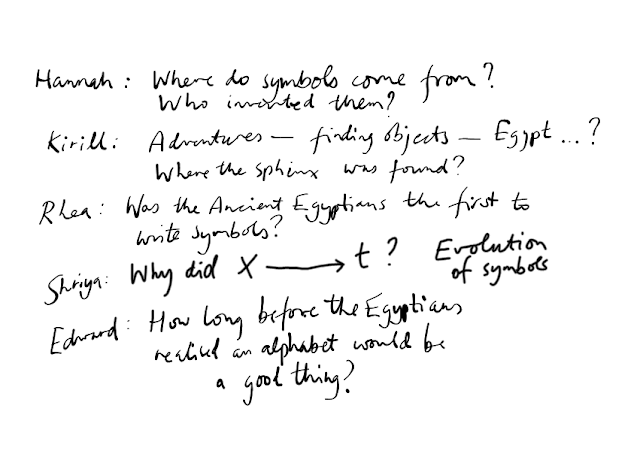 Hannah : Where do symbols come from?
Who invented them?
Kirill: Adventures — finding objects — Egypt ... ?
Where the sphinx was found?
Rhea: Was the Ancient Egyptians the first to
write symbols?
Shriya: Why did X ⟶ t ? Evolution
of symbols
Edward: How long before the Egyptians
realised an alphabet would be
a good thing?